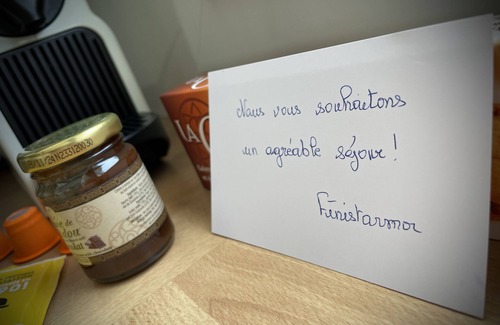 Nous vous souhaitons
un agréable séjour !
Finistarmor
/24 N233120030
de
LA